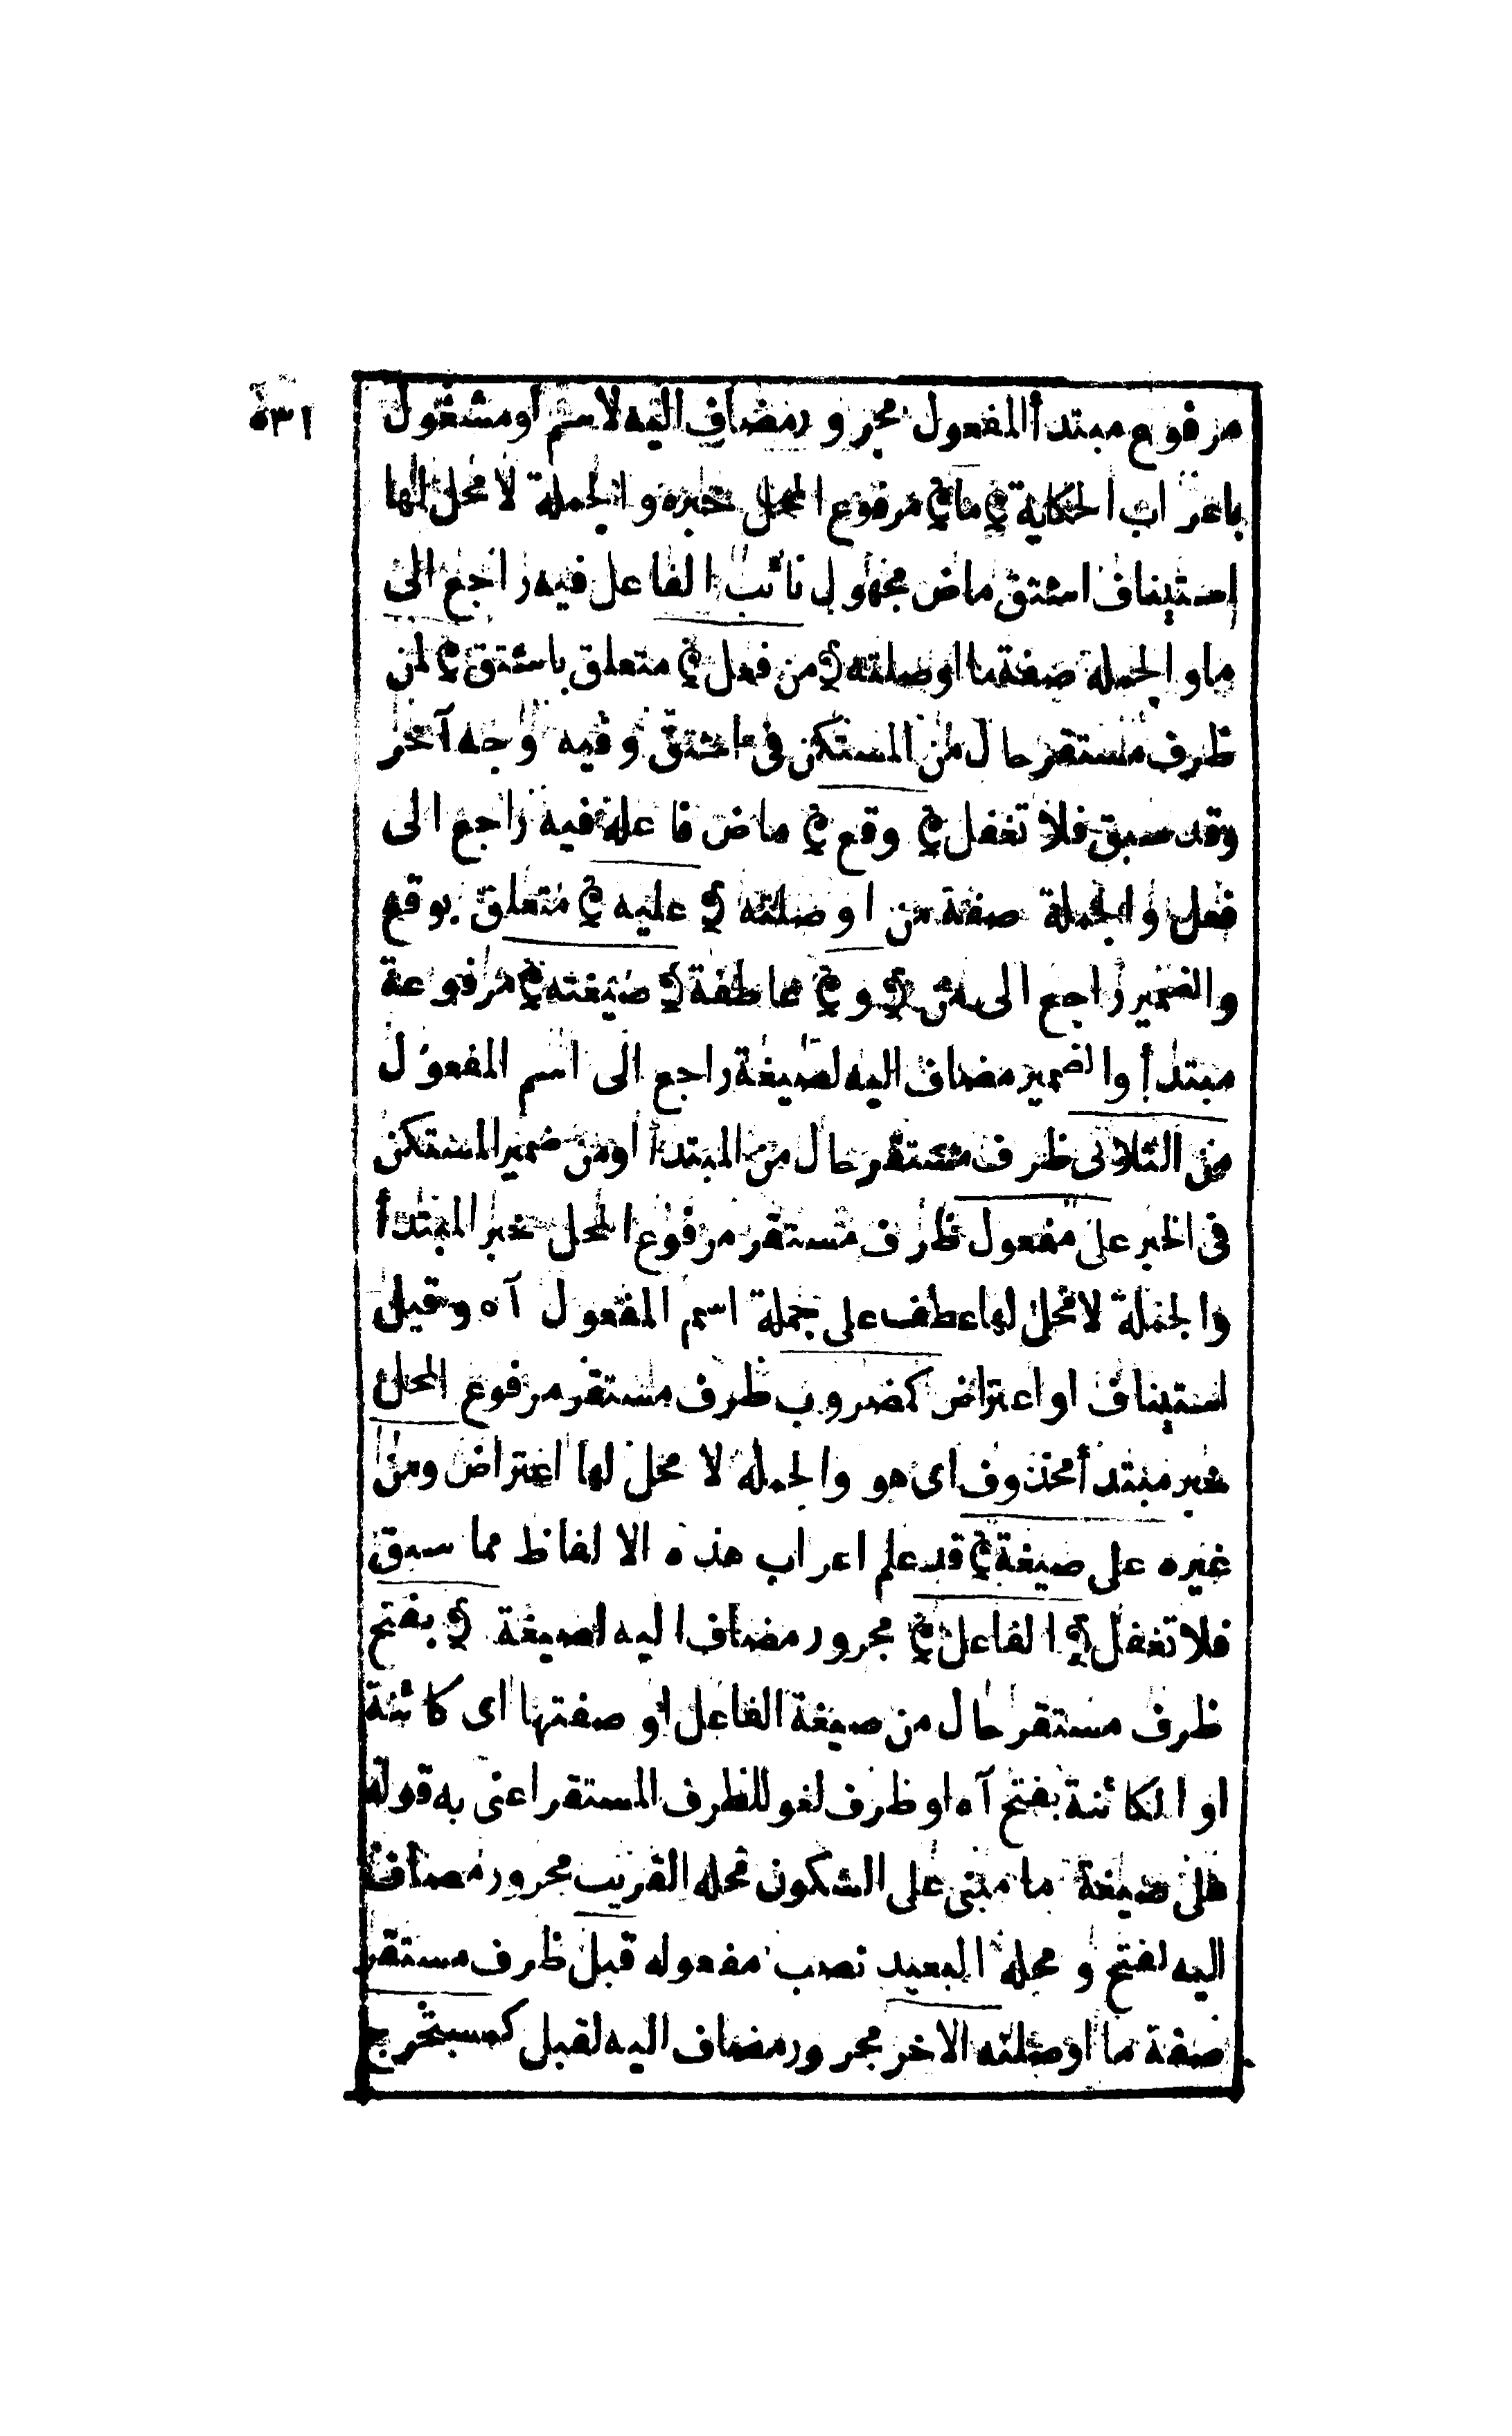 ٥٣١
مرفوع مبتدأ المفعول مجرور مضاف اليه لاسم او مشغول
باعراب الحكاية ﴿ ما ﴾ مرفوع المحل خبره والجملة لا محل لها
استيناف اشتق ماض مجهول نائب الفاعل فيه راجع الى
ما والجملة صفة ما او صلته ﴿ من فعل ﴾ متعلق باشتق ﴿ لمن
ظرف مستقر حال من المستكن فى اشتق وفيه وجه آخر
وقد سبق فلا تغفل ﴿ وقع ﴾ ماض فاعله فيه راجع الى
فعل والجملة صفة من او صلته ﴿ عليه ﴾ متعلق بوقع
والضمير راجع الى من ﴿ و ﴾ عاطفة ﴿ صيغته ﴾ مرفوعة
مبتدأ والضمير مضاف اليه لصيغة راجع الى اسم المفعول
من الثلاثى ظرف مستقر حال من المبتدأ او من ضمير المستكن
فى الخبر على مفعول ظرف مستقر مرفوع المحل خبر المبتدأ
والجملة لا محل لها عطف على جملة اسم المفعول آه وقيل
استيناف او اعتراض كمضروب ظرف مستقر مرفوع المحل
خبر مبتدأ محذوف اى هو والجملة لا محل لها اعتراض ومن
غيره على صيغة ﴾ قد علم اعراب هذه الالفاظ مما سبق
فلا تغفل ﴿ الفاعل ﴾ مجرور مضاف اليه لصيغة ﴿ بفتح
ظرف مستقر حال من صيغة الفاعل او صفتها اى كائنة
او الكائنة بفتح آه او ظرف لغو للظرف المستقر اعنى به قوله
على صيغة ما مبنى على السكون محله القريب مجرور مضاف
اليه لفتح و محله البعيد نصب مفعوله قبل ظرف مستقر
صفة ما او صلته الاخر مجرور مضاف اليه لقبل كمستخرج